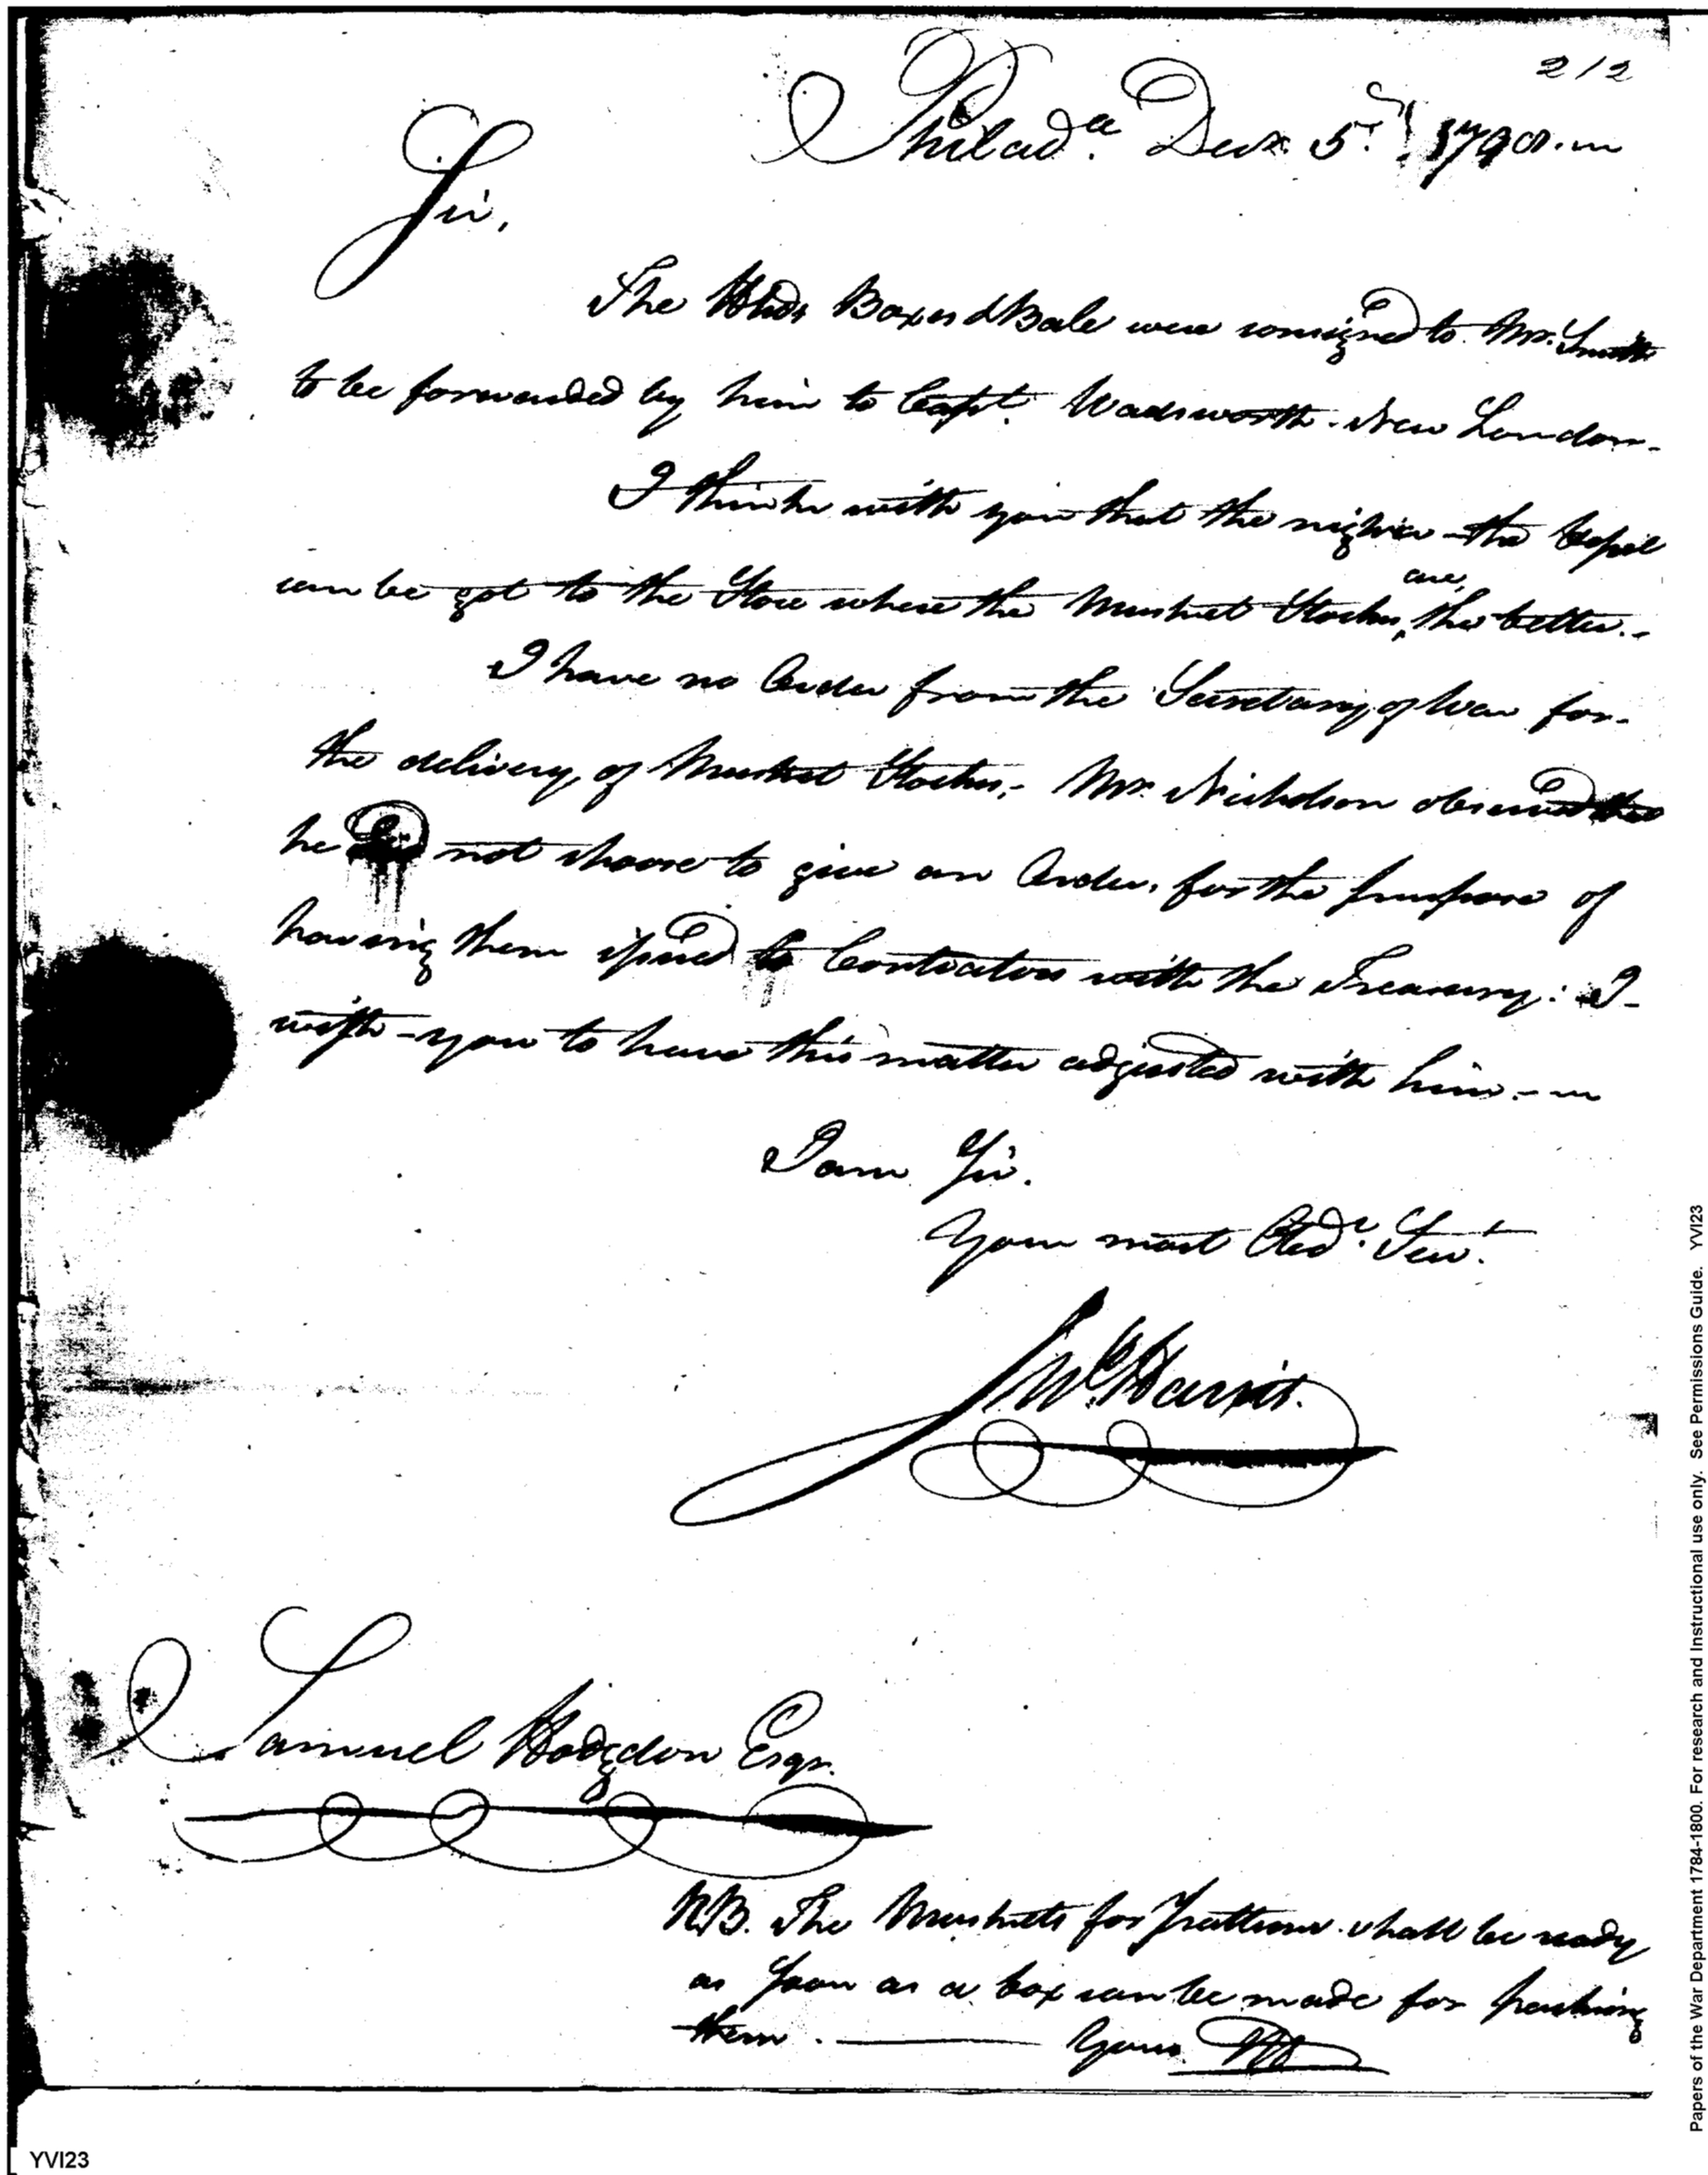 212
Philad.ª Decr. 5.th 1798.
Sir,
The Hhds Boxes & Bale were consigned to Mr. Smith
to be forwarded by him to Capt. Wadsworth. New London.
I think with you that the nigher the Vessel
are,
can be got to the Store where the Musket Stocks the better.-
I have no Order from the Secretary of War for
the delivery of Musket Stocks,- Mr. Nicholson observed that
he did not choose to give an Order, for the purpose of
having them issued to Contractors with the Treasury: I
wish you to have this matter adjusted with him.-
I am Sir.
Your most Obd.t Serv.t
Jn.º Harris.
Samuel Hodgdon Esqr.
NB. The Muskets for patterns shall be ready
as soon as a box can be made for packing
them. Yours
YVI23
Papers of the War Department 1784-1800. For research and Instructional use only. See Permissions Guide. YVI23